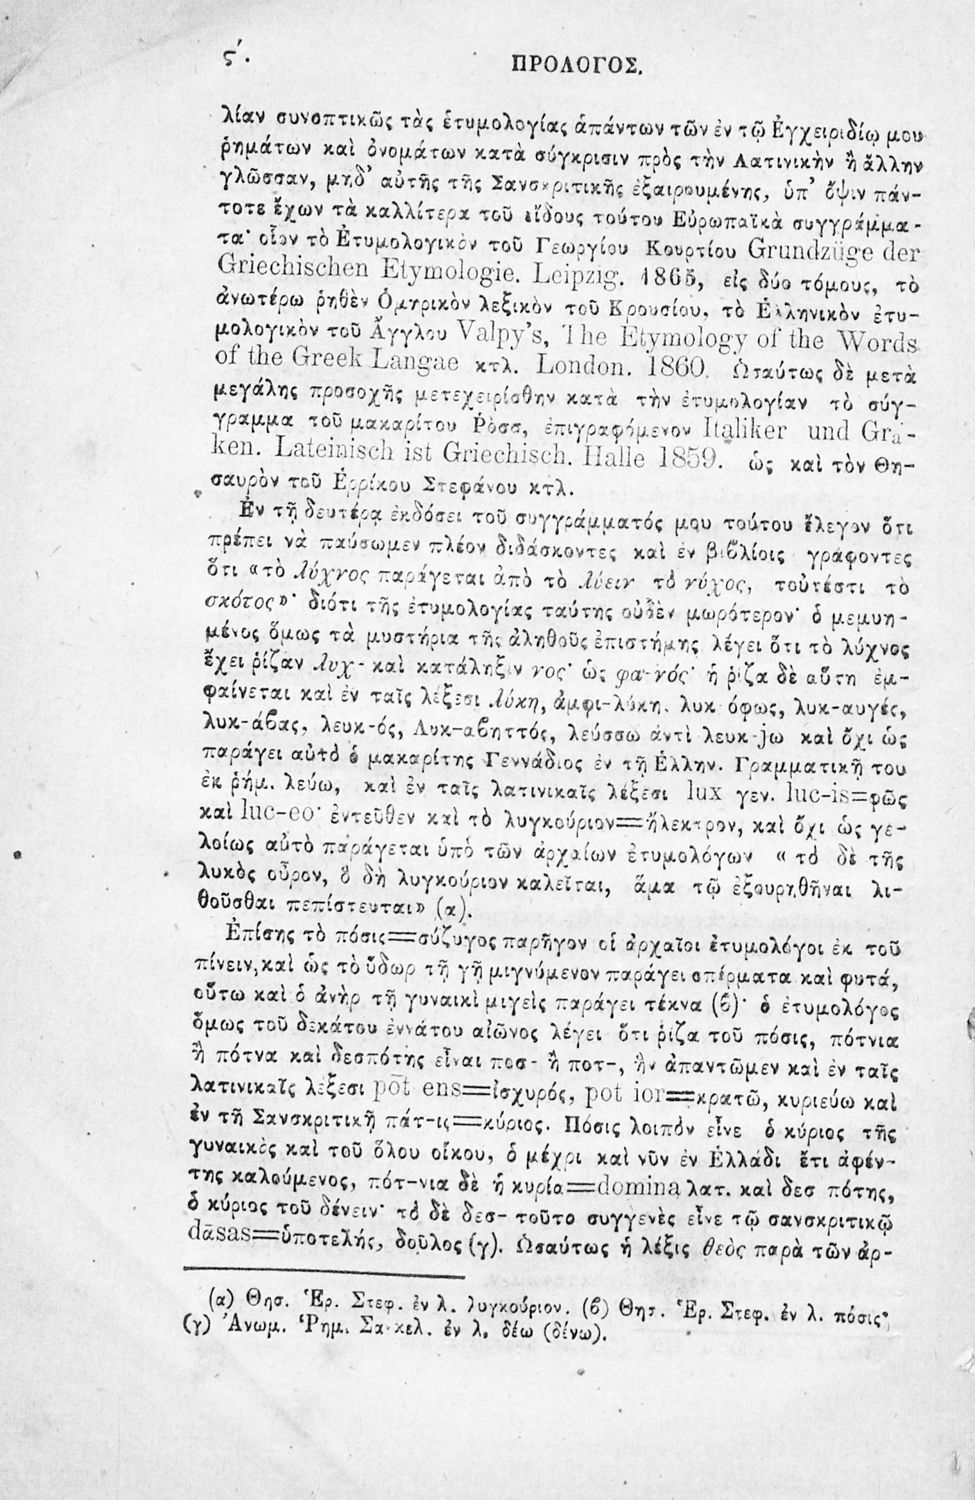 ςʹ.
ΠΡΟΛΟΓΟΣ.
λίαν συνοπτικῶς τὰς ἐτυμολογίας ἁπάντων τῶν ἐν τῷ Ἐγχειριδίῳ μου
ῥημάτων καὶ ὀνομάτων κατὰ σύγκρισιν πρὸς τὴν Λατινικὴν ἢ ἄλλην
γλῶσσαν, μηδ' αὐτῆς τῆς Σανσκριτικῆς ἐξαιρουμένης, ὑπ' ὄψιν πάν-
τοτε ἔχων τὰ καλλίτερα τοῦ εἴδους τούτου Εὐρωπαϊκὰ συγγράμμα-
τα· οἷον τὸ Ἐτυμολογικὸν τοῦ Γεωργίου Κουρτίου Grundzüge der
Griechischen Etymologie. Leipzig. 1865, εἰς δύο τόμους, τὸ
ἀνωτέρω ῥηθὲν Ὁμηρικὸν λεξικὸν τοῦ Κρουσίου, τὸ Ἑλληνικὸν ἐτυ-
μολογικὸν τοῦ Ἄγγλου Valpy's, The Etymology of the Words
of the Greek Langae κτλ. London. 1860. Ὡσαύτως δὲ μετὰ
μεγάλης προσοχῆς μετεχειρίσθην κατὰ τὴν ἐτυμολογίαν τὸ σύγ-
γραμμα τοῦ μακαρίτου Ῥὸσς, ἐπιγραφόμενον Italiker und Grä-
ken. Lateinisch ist Griechisch. Halle 1859. ὡς καὶ τὸν Θη-
σαυρὸν τοῦ Ἑρρίκου Στεφάνου κτλ.
Ἐν τῇ δευτέρᾳ ἐκδόσει τοῦ συγγράμματός μου τούτου ἔλεγον ὅτι
πρέπει νὰ παύσωμεν πλέον διδάσκοντες καὶ ἐν βιβλίοις γράφοντες
ὅτι «τὸ λύχνος παράγεται ἀπὸ τὸ λύειν τὸ νύχος, τουτέστι τὸ
σκότος»· διότι τῆς ἐτυμολογίας ταύτης οὐδὲν μωρότερον· ὁ μεμυη-
μένος ὅμως τὰ μυστήρια τῆς ἀληθοῦς ἐπιστήμης λέγει ὅτι τὸ λύχνος
ἔχει ῥίζαν λυχ- καὶ κατάληξιν νος· ὡς φα-νός· ἡ ῥίζα δὲ αὕτη ἐμ-
φαίνεται καὶ ἐν ταῖς λέξεσι λύκη, ἀμφι-λύκη, λυκ όφως, λυκ-αυγές,
λυκ-άβας, λευκ-ός, Λυκ-αβηττός, λεύσσω ἀντὶ λευκ-jω καὶ ὄχι ὡς
παράγει αὐτὸ ὁ μακαρίτης Γεννάδιος ἐν τῇ Ἑλλην. Γραμματικῇ του
ἐκ ῥήμ. λεύω, καὶ ἐν ταῖς λατινικαῖς λέξεσι lux γεν. luc-is=φῶς
καὶ luc-eo· ἐντεῦθεν καὶ τὸ λυγκούριον=ἤλεκτρον, καὶ ὄχι ὡς γε-
λοίως αὐτὸ παράγεται ὑπὸ τῶν ἀρχαίων ἐτυμολόγων « τὸ δὲ τῆς
λυκὸς οὖρον, ὃ δὴ λυγκούριον καλεῖται, ἅμα τῷ ἐξουρηθῆναι λι-
θοῦσθαι πεπίστευται» (α).
Ἐπίσης τὸ πόσις=σύζυγος παρῆγον οἱ ἀρχαῖοι ἐτυμολόγοι ἐκ τοῦ
πίνειν, καὶ ὡς τὸ ὕδωρ τῇ γῇ μιγνύμενον παράγει σπέρματα καὶ φυτά,
οὕτω καὶ ὁ ἀνὴρ τῇ γυναικὶ μιγεὶς παράγει τέκνα (β)· ὁ ἐτυμολόγος
ὅμως τοῦ δεκάτου ἐννάτου αἰῶνος λέγει ὅτι ῥίζα τοῦ πόσις, πότνια
ἢ πότνα καὶ δεσπότης εἶναι ποσ- ἢ ποτ-, ἣν ἀπαντῶμεν καὶ ἐν ταῖς
λατινικαῖς λέξεσι pŏt ens=ἰσχυρός, pot ior=κρατῶ, κυριεύω καὶ
ἐν τῇ Σανσκριτικῇ πάτ-ις=κύριος. Πόσις λοιπὸν εἶνε ὁ κύριος τῆς
γυναικὸς καὶ τοῦ ὅλου οἴκου, ὁ μέχρι καὶ νῦν ἐν Ἑλλάδι ἔτι ἀφέν-
της καλούμενος, πότ-νια δὲ ἡ κυρία=domina λατ. καὶ δεσ πότης,
ὁ κύριος τοῦ δένειν· τὸ δὲ δεσ- τοῦτο συγγενὲς εἶνε τῷ σανσκριτικῷ
dāsas=ὑποτελής, δοῦλος (γ). Ὡσαύτως ἡ λέξις θεὸς παρὰ τῶν ἀρ-
(α) Θησ. Ἑρ. Στεφ. ἐν λ. λυγκούριον. (β) Θησ. Ἑρ. Στεφ. ἐν λ. πόσις·
(γ) Ἀνωμ. Ῥημ. Σακκελ. ἐν λ. δέω (δένω).